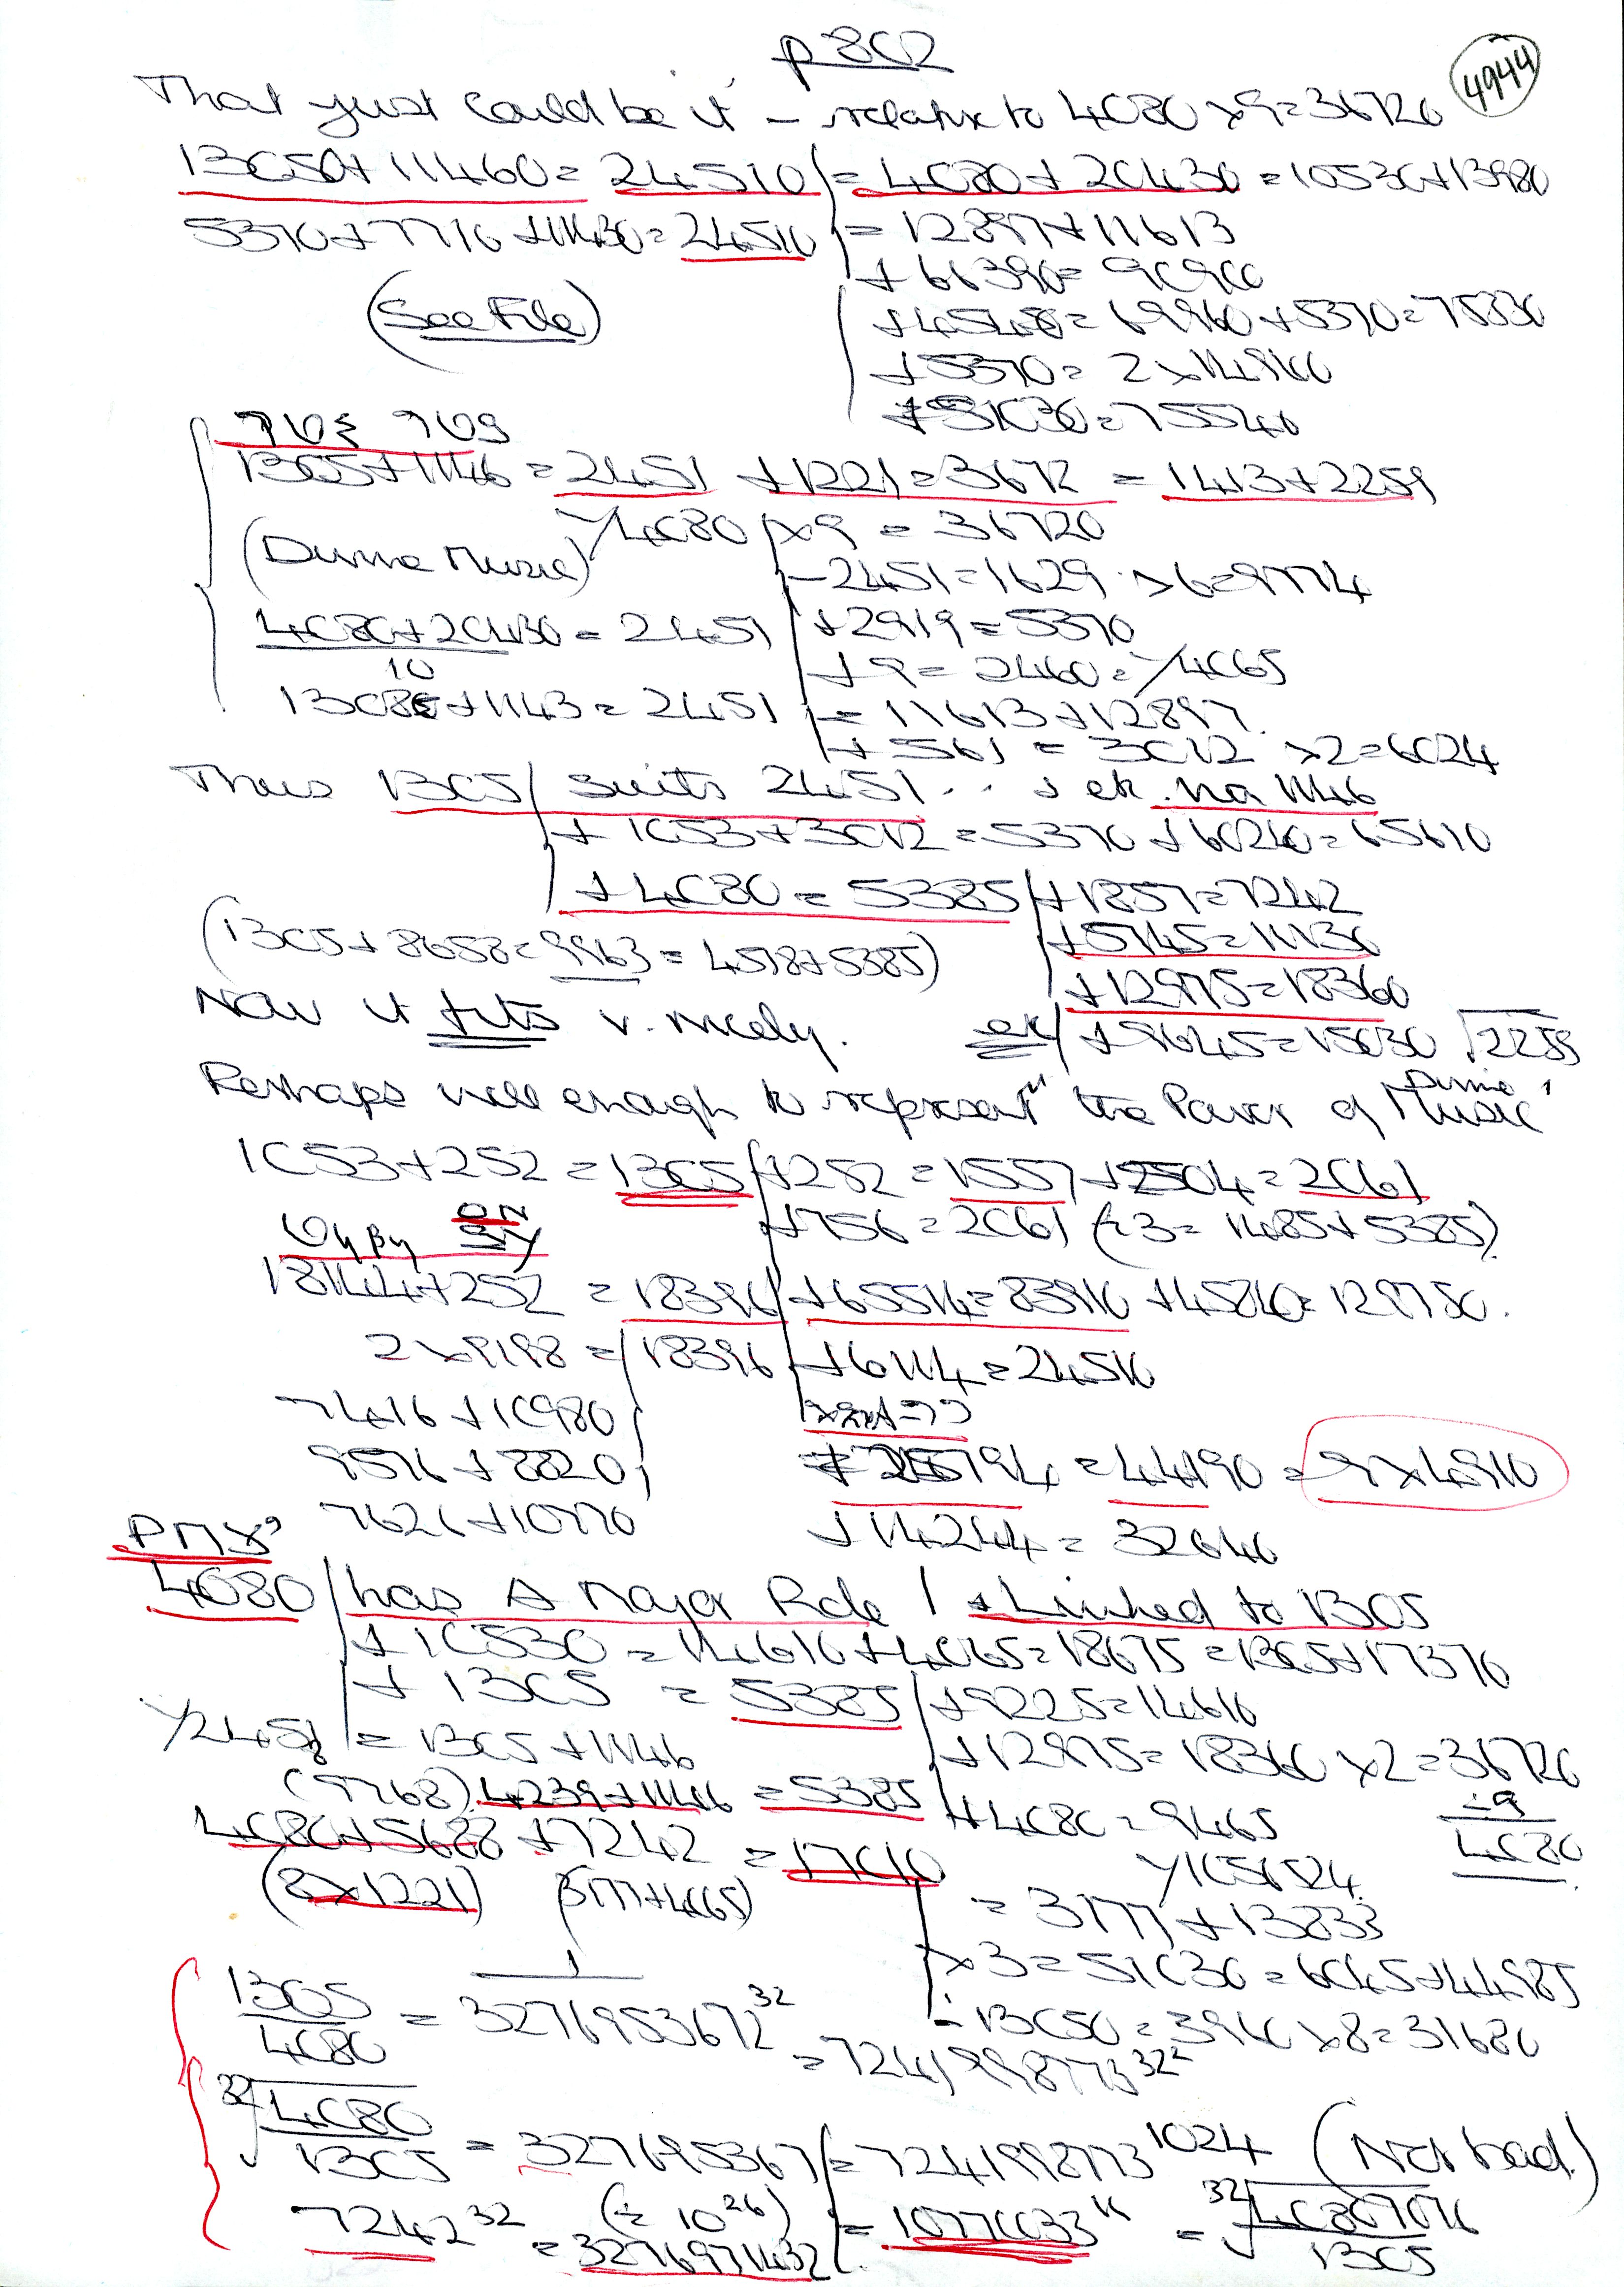 p 802
4944
That just could be it - relative to 4080 x 9 = 36720
13050 + 11460 = 24510 = 4080 + 20430 = 10530 + 13980
5370 + 7710 + 11430 = 24510 = 12897 + 11613
+ 66390 = 90900
(See File)
+ 45450 = 69960 + 5370 = 75330
+ 5370 = 2 x 14940
+ 51030 = 75540
1305 + 1146 = 2451 + 1221 = 3672 = 1413 + 2259
γ 4080 x 9 = 36720
(Divine Music)
- 2451 = 1629 x 6 = 9774
4080 + 20430 = 2451
10
+ 2919 = 5370
+ 9 = 2460 = γ 4065
1308 + 1143 = 2451
= 11613 + 12897
+ 561 = 3012 x 2 = 6024
Thus 1305 suits 2451 .. & ek. na 1146
+ 1053 + 3012 = 5370 + 60240 = 65610
+ 4080 = 5385 + 1857 = 7242
(1305 + 8658 = 9963 = 4578 + 5385)
+ 5745 = 11130
+ 12975 = 18360
Now it fits v. nicely.
ek + 9645 = 15030 √2259
Perhaps well enough to represent "the Power of Divine Music"
1053 + 252 = 1305 + 252 = 1557 + 504 = 2061
+ 756 = 2061 (÷ 3 =
18144 + 252 = 18396 + 65514 = 83910 + 45840 = 129750.
2 x 9198 = 18396 + 6114 = 24510
7416 + 10980
9576 + 8820
= 44190 = 9 x 4910
7626 + 10770
+ 14244 = 32640
4080 has A Major Role & Linked to 1305
+ 10530 = 14610 + 4065 = 18675 = 1305 + 17370
+ 1305 = 5385 + 9225 = 14610
γ 2451 = 1305 + 1146
+ 12975 = 18360 x 2 = 36720
÷ 9
4080
(9768) 4239 + 1146 = 5385 + 4080 = 9465
4080 + 5688 + 7242 = 17010
(8 x 1221) (3177 + 4065)
= 3177 + 13833
x 3 = 51030 = 6045 + 44985
- 13050 = 3960 x 8 = 31680
1305
4080
= 1
3276953672 32
= 7241998773 32²
32√4080
1305 = 327695367 = 7241998773 1024 (Not bad)
7242 32 (÷ 10 26)
= 32769711432
= 10770033 16
= 32√
1305